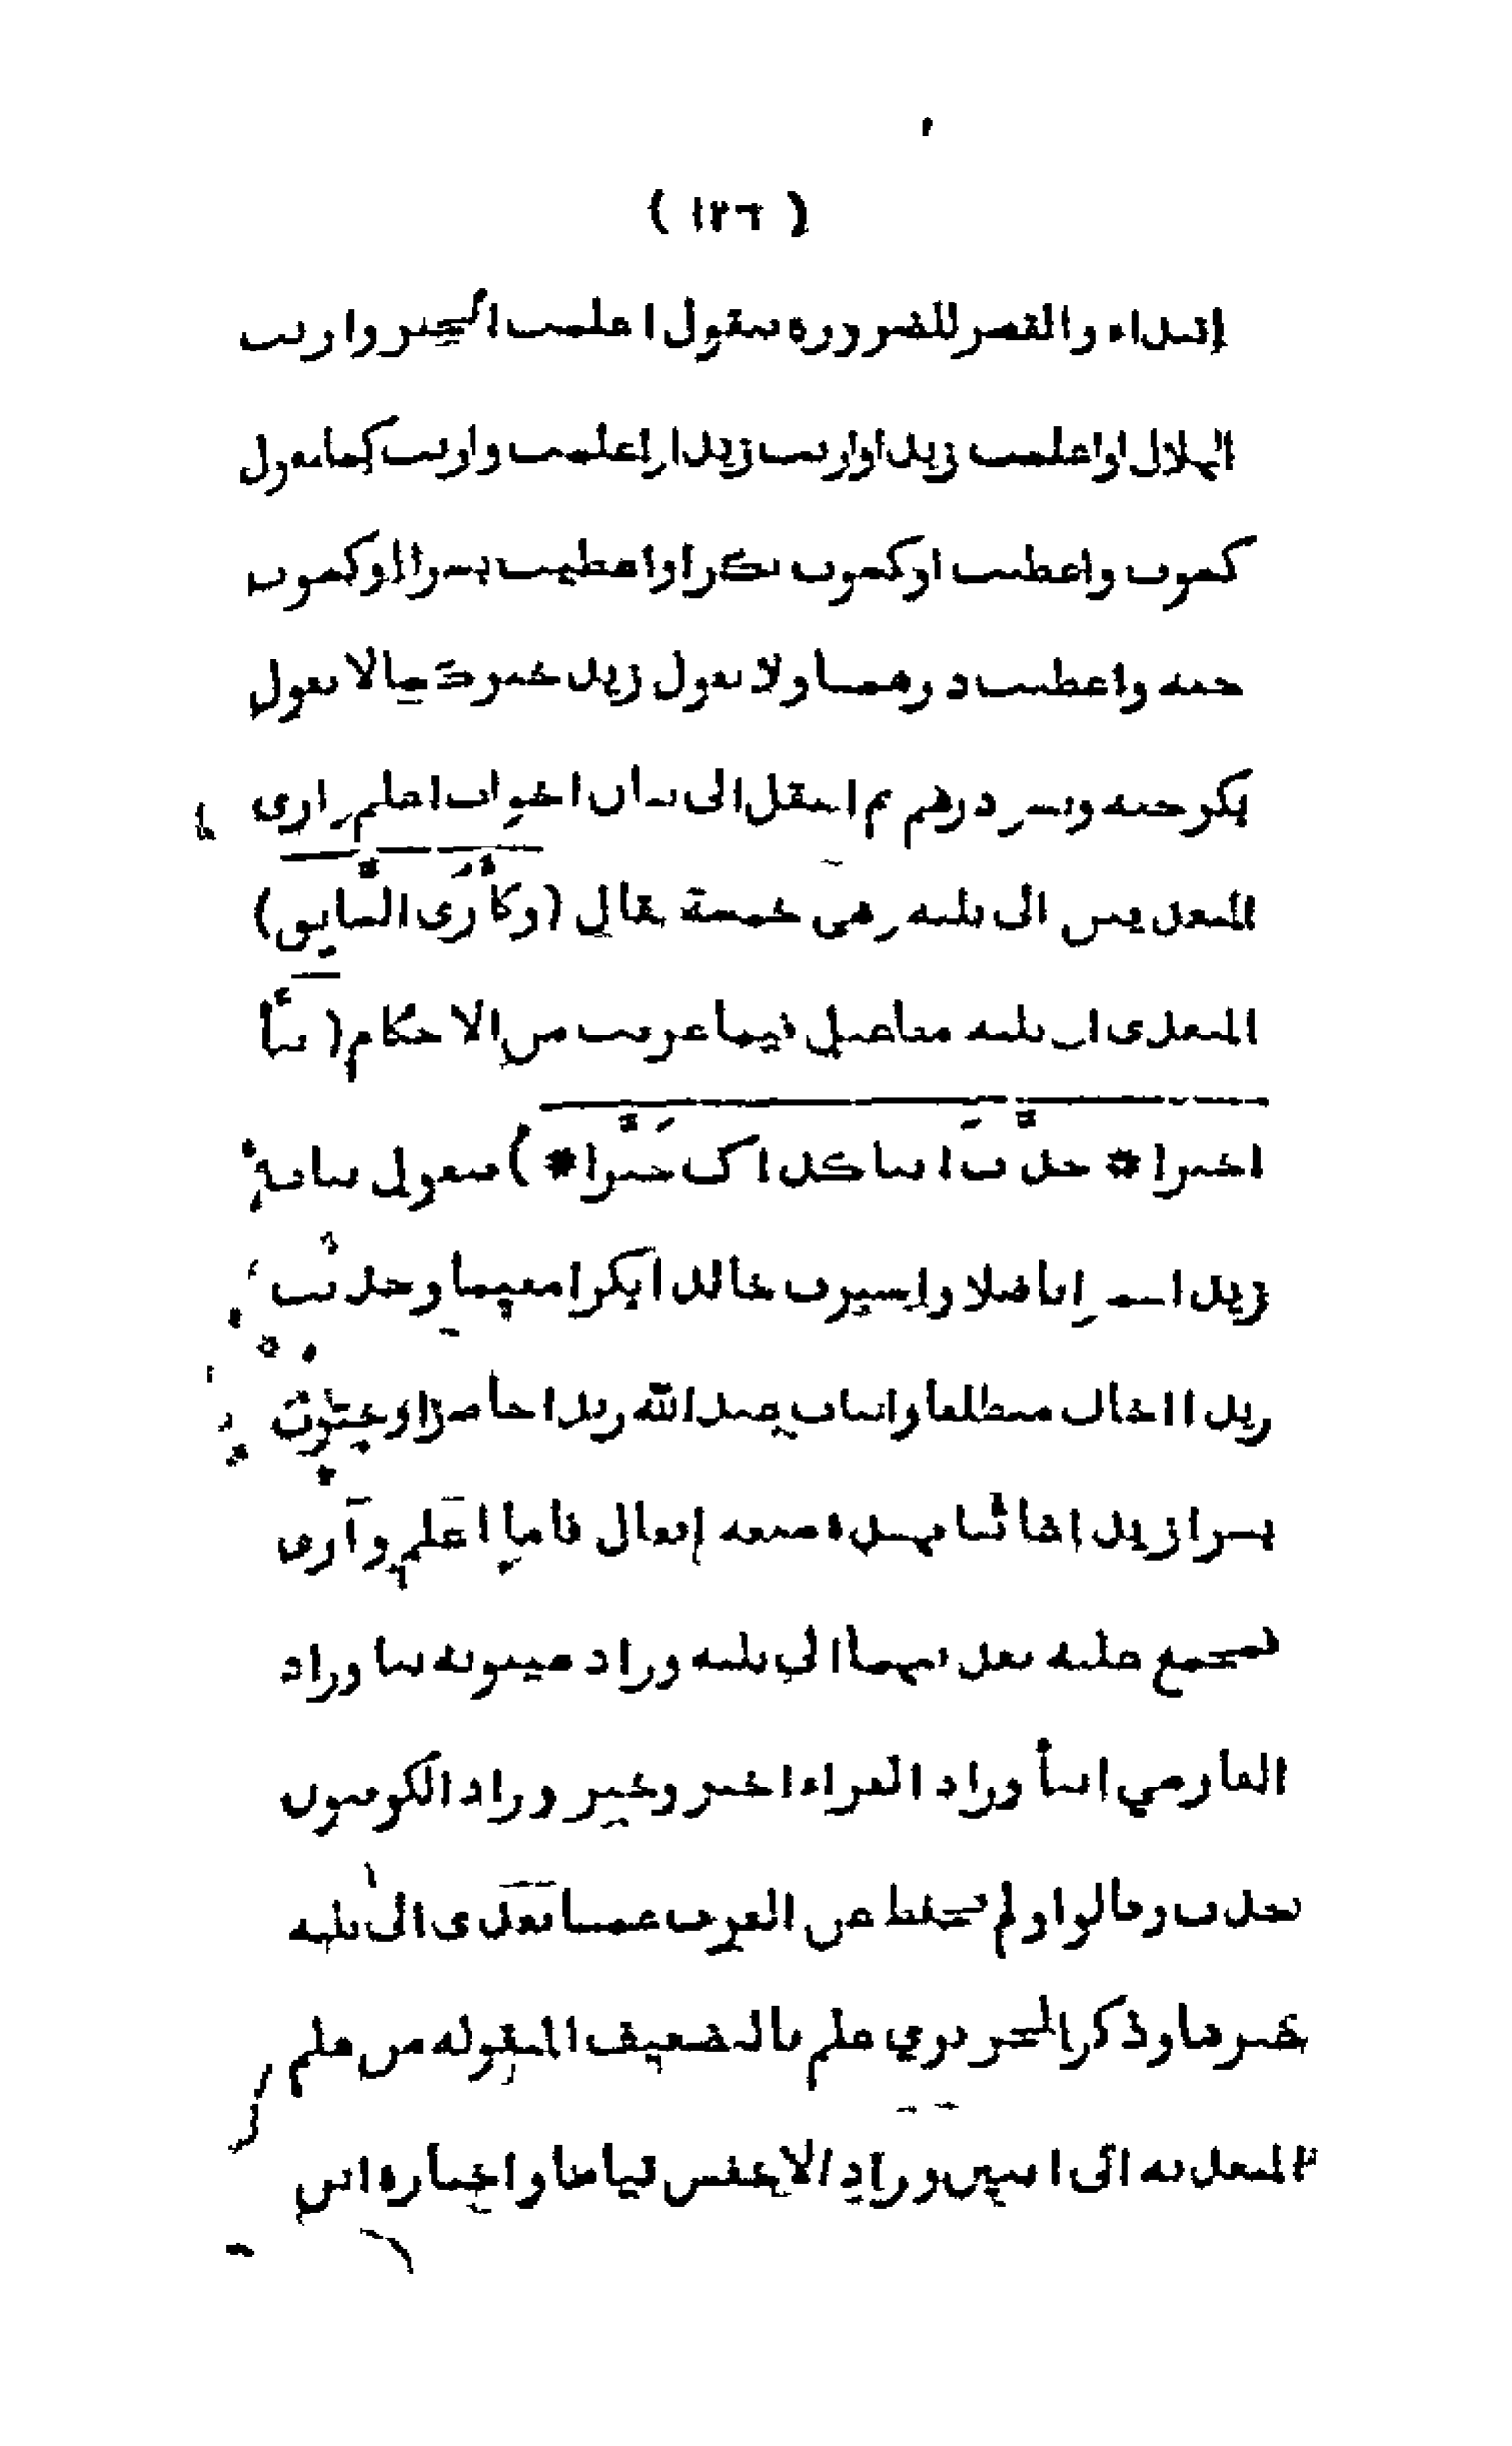 ( ١٢٦ )
ابتداء والقصر للضرورة فتقول اعلمت الخبر واريت
الهلال او اعلمت زيدا واريت زيدا اي اعلمت واريت كما تقول
كسوت واعطيت او كسوت بكرا واعطيت بسرا او كسوت
جبة واعطيت درهما ولا تقول زيد خبر كما لا تقول
بكر جبة وبسر درهم ثم انتقل الى بيان اخوات اعلم وارى
المتعديين الى ثلثة وهي خمسة فقال (وكأرى السابق)
المتعدى الى ثلثة مفاعيل فيما عرفت من الاحكام (نبأ
اخبرا * حدث انبأ كذاك خبرا *) فتقول نبأت
زيدا اسمرا فاضلا واخبرت خالدا بكرا مقيما وحدثت
زيدا الخال منطلقا وانبأت عبد الله زيدا حاضرا وخبرت
بسرا زيدا غائبا فهذه سبعة افعال فاما اعلم وارى
فمجمع عليه تعديتهما الى ثلثة وزاد سيبويه نبأ وزاد
الفارسي انبأ وزاد الفراء اخبر وخبر وزاد الكوفيون
حدث وقالوا ولم تحفظ عن العرب عما تعدى الى ثلثة
غيرها وذكر الحريري علم بالتضعيف المنقولة من علم
المتعدية الى اثنين وزاد الاخفش قياسا واختاره ابن